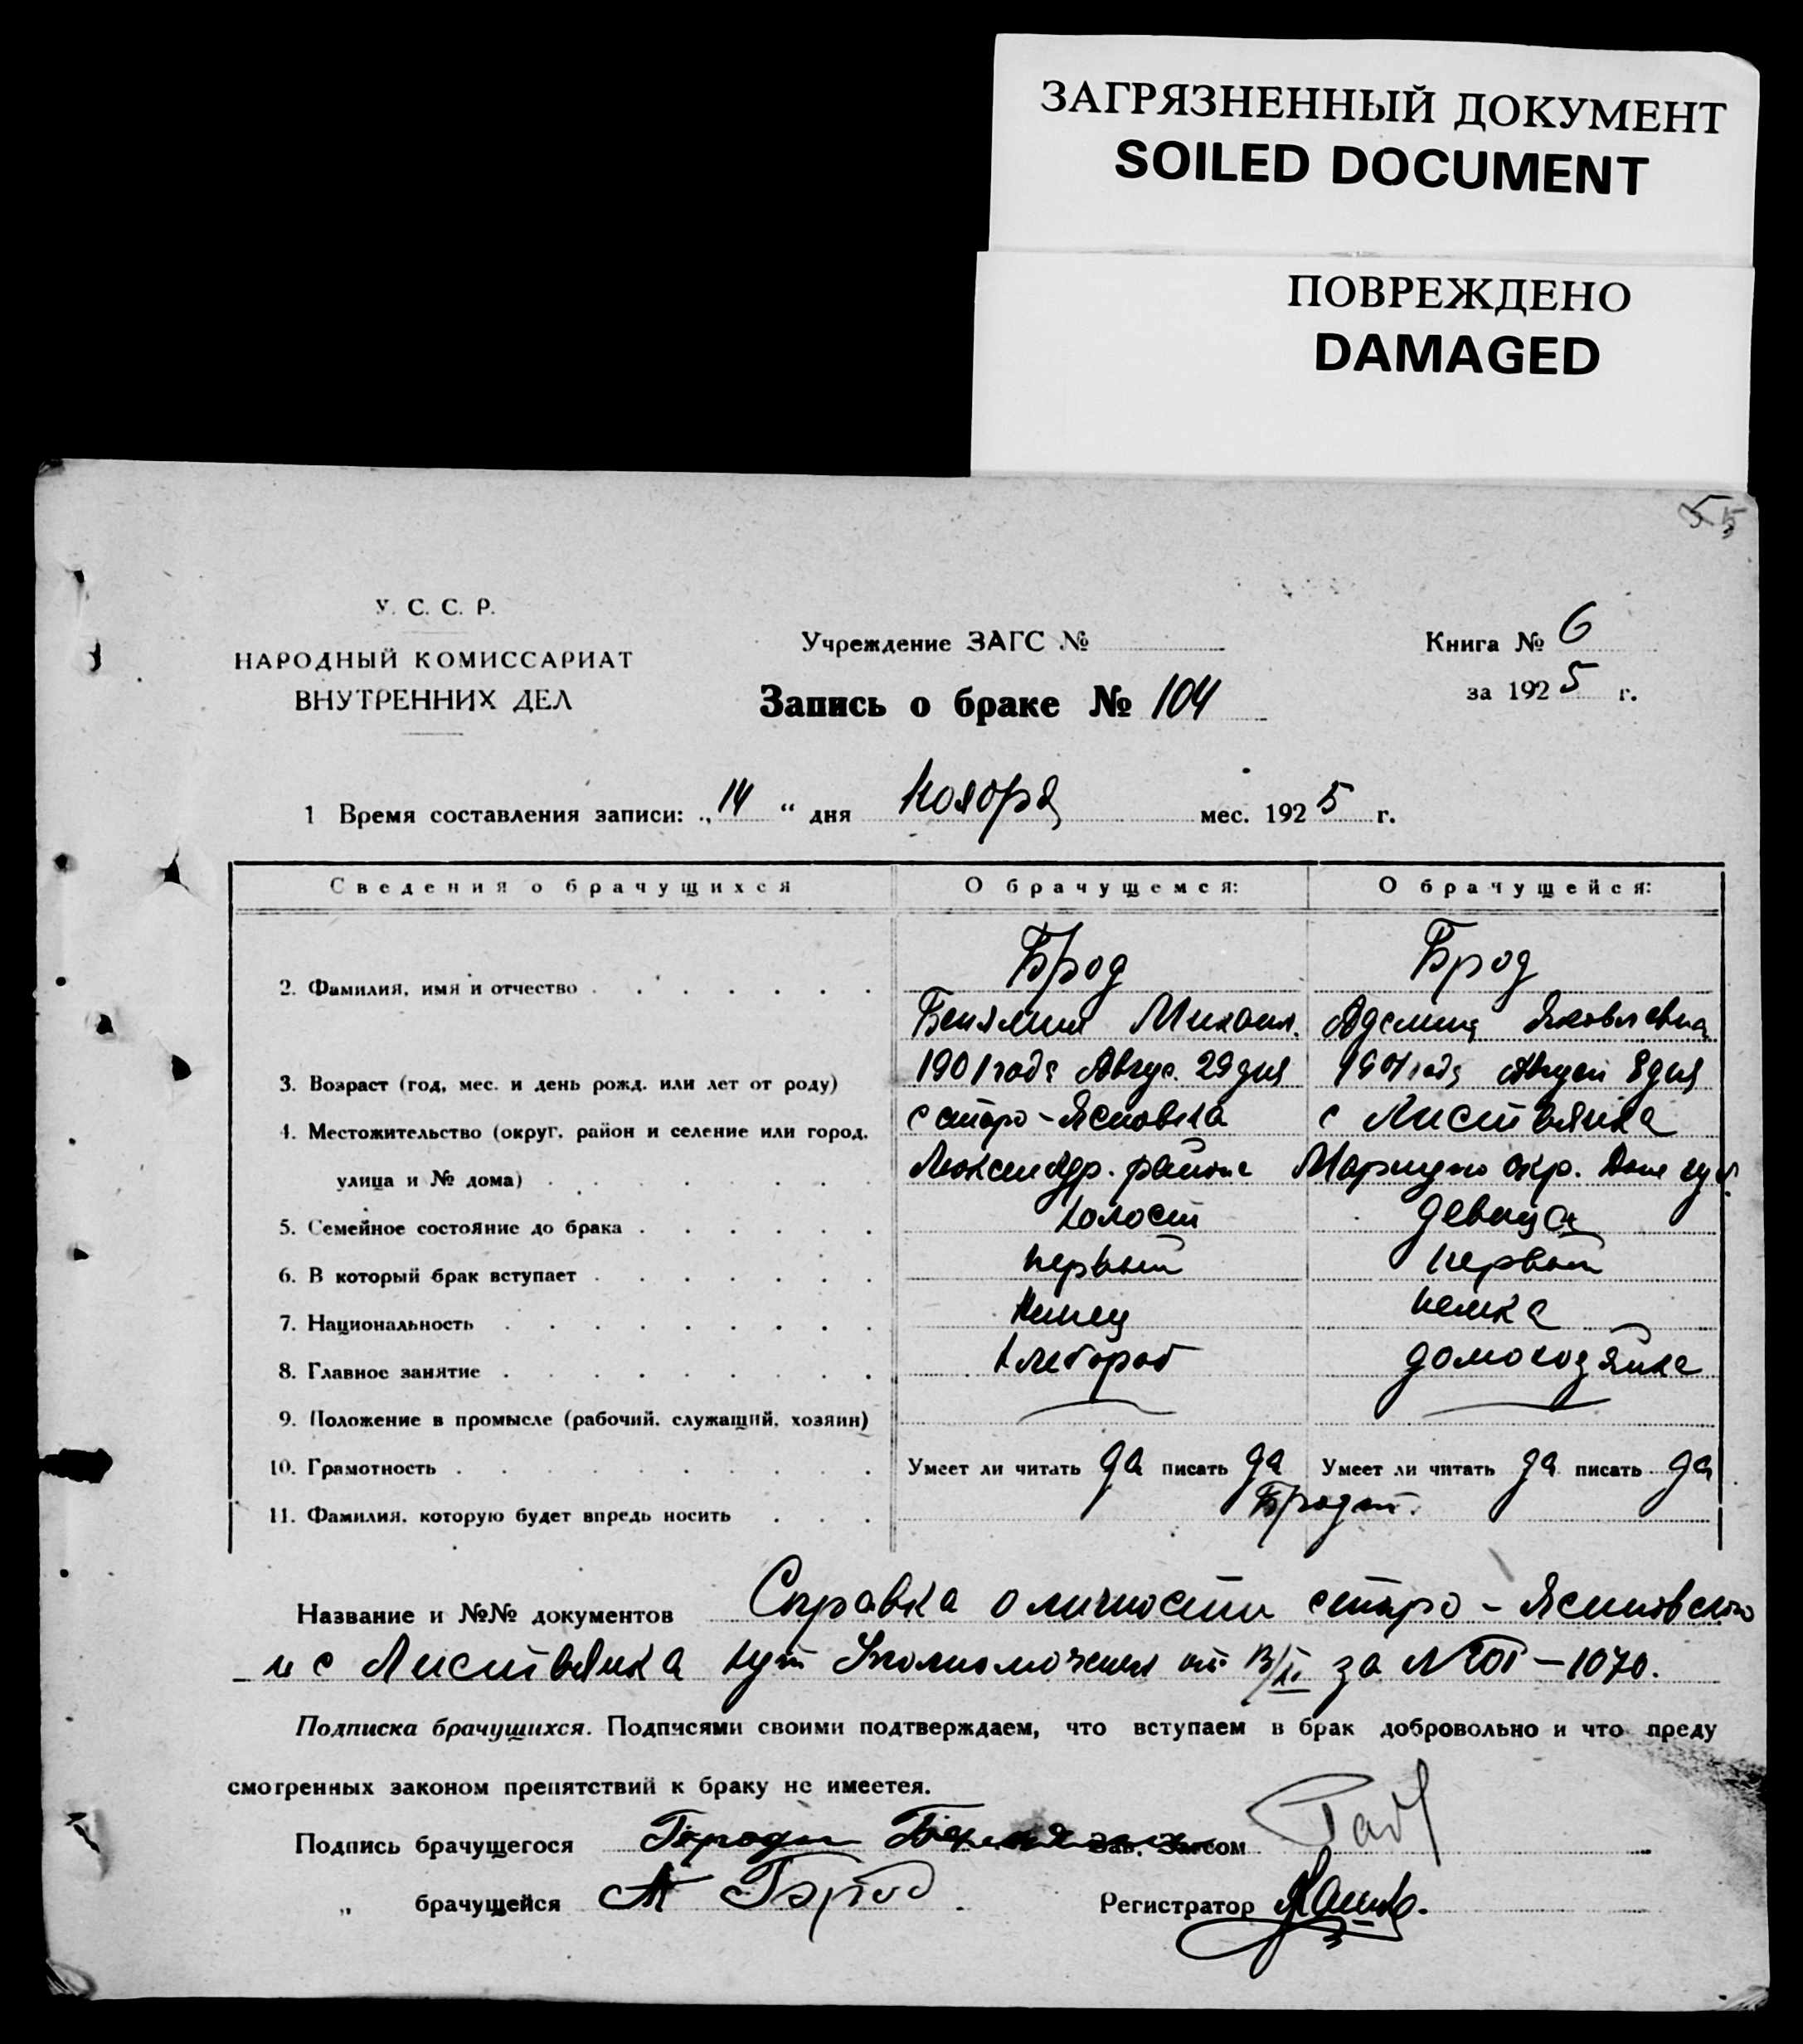 ЗАГРЯЗНЕННЫЙ ДОКУМЕНТ
SOILED DOCUMENT
ПОВРЕЖДЕНО
DAMAGED
У. С. С. Р.
НАРОДНЫЙ КОМИССАРИАТ
ВНУТРЕННИХ ДЕЛ
Учреждение ЗАГС №
Запись о браке № 104
Книга № 6
за 1925 г.
1 Время составления записи: „ 14 “ дня Ноября мес. 1925 г.
Сведения о брачущихся О брачущемся: О брачущейся:
Брод Брод
2. Фамилия, имя и отчество
Бениямин Михаил. Яковлевна
3. Возраст (год, мес. и день рожд. или лет от роду) 1901 года Авгус. 29 дня 1901 года 8 дня
4. Местожительство (округ, район и селение или город, с старо-Ясиновка с Листвянка
улица и № дома) района окр. Дон губ.
5. Семейное состояние до брака Холост девица
6. В который брак вступает первый первый
7. Национальность Немец немка
8. Главное занятие Хлебороб домохозяйка
9. Положение в промысле (рабочий, служащий, хозяин)
10. Грамотность Умеет ли читать да писать да Умеет ли читать да писать да
11. Фамилия, которую будет впредь носить
Название и №№ документов Справка о личности старо-Ясиновского
и с Листвянка за – 1070.
Подписка брачущихся. Подписями своими подтверждаем, что вступаем в брак добровольно и что преду
смотренных законом препятствий к браку не имеетея.
Подпись брачущегося Зав. Загсом
„ брачущейся А Регистратор